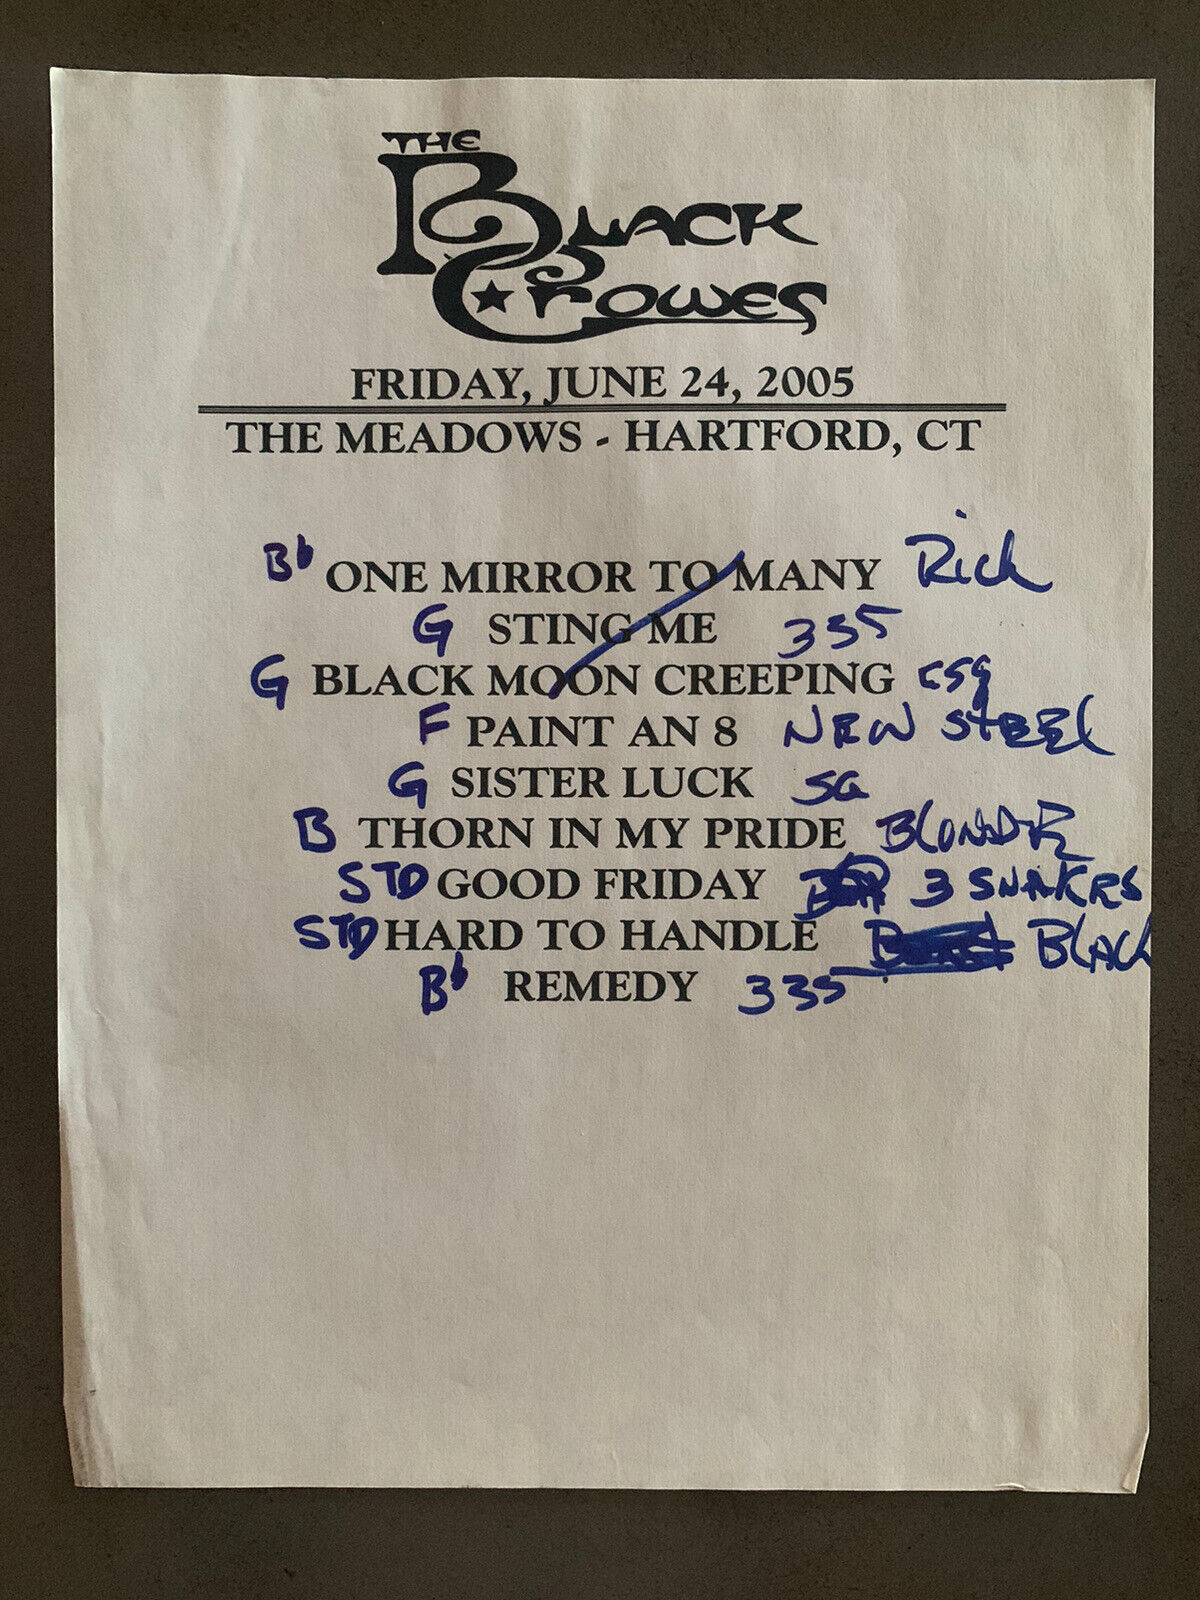 THE
BLACK
CROWES
FRIDAY, JUNE 24, 2005
THE MEADOWS - HARTFORD, CT
Bb ONE MIRROR TO MANY Rich
G STING ME 335
G BLACK MOON CREEPING
F PAINT AN 8 NEW STEEL
G SISTER LUCK SG
B THORN IN MY PRIDE
STD GOOD FRIDAY 3 SNAKES
STD HARD TO HANDLE BLACK
Bb REMEDY 335